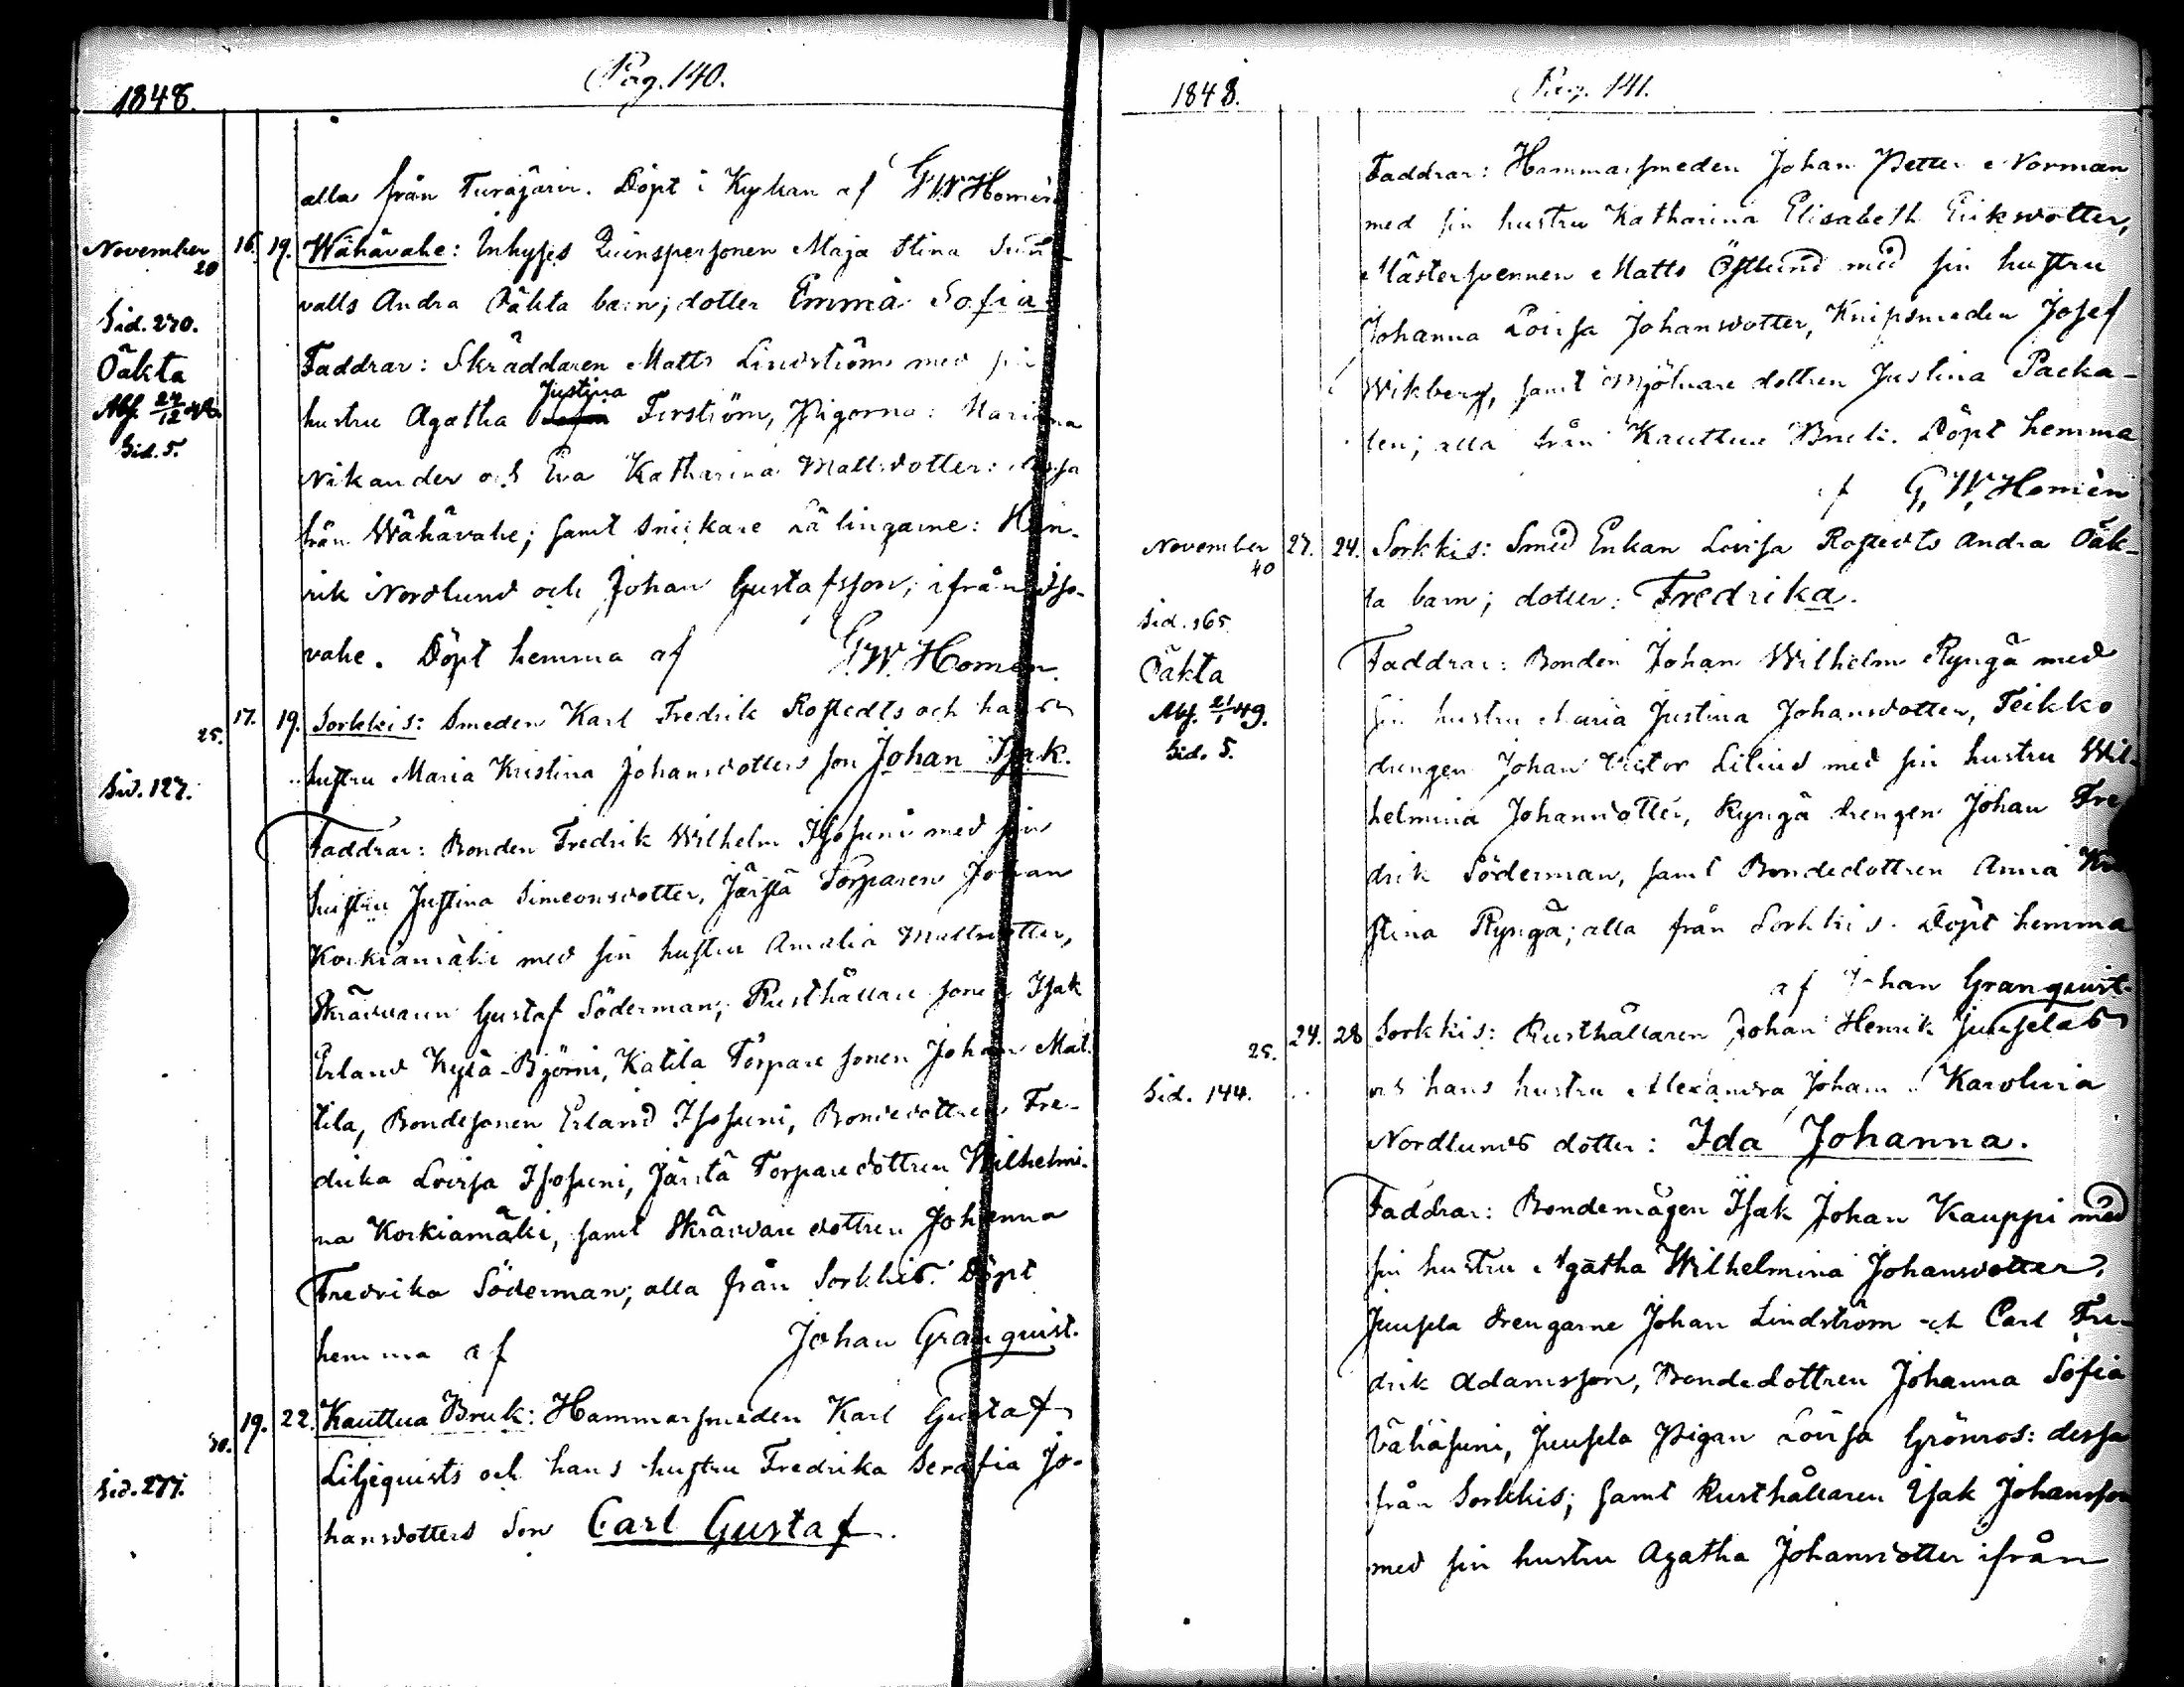 1848.
Pag. 140.
alla från Turajärvi. Döpt i Kyrkan af G.W. Homén
November 20 16. 19. Wähävahe: Inhyses Qvinspersonen Maja Stina
valls Andra Oäkta barn; dotter Emma Sofia
Sid. 270.
Oäkta
Abs. 24/12 48.
Sid. 5.
Faddrar: Skräddaren Matts Lindström med sin
hustru Agatha Justina Ferström, Pigorna: Marianna
Nikander och Eva Katharina Mattsdotter: dessa
från Wähävahe; samt Snickare Lälingarne: Hen-
rik Nordlund och Johan Gustafsson; ifrån Iso-
vahe. Döpt hemma af G.W. Homén.
25. 17. 19. Sorkkis: Smeden Karl Fredrik Rostedts och hans
Sid. 127. hustru Maria Kristina Johansdotters son Johan Isak.
Faddrar: Bonden Fredrik Wilhelm Isosuni med sin
hustru Justina Simeonsdotter, Järstä Torparen Johan
Korkiamäki med sin hustru Amalia Mattsdotter,
Skräddaren Gustaf Söderman, Rusthållare sonen Isak
Erland Kylä-Björni, Katila Torpare sonen Johan Mat-
tila, Bondesonen Erland Isosuni, Bondedottren Fre-
drika Lovisa Isosuni, Järstä Torparedottren Wilhelmi-
na Korkiamäki, samt Skräddare dottren Johanna
Fredrika Söderman; alla från Sorkkis. Döpt
hemma af Johan Granquist.
30. 19. 22. Kauttua Bruk: Hammarsmeden Karl Gustaf
Sid. 277. Liljequists och hans hustru Fredrika Serafia Jo-
hansdotters Son Carl Gustaf.
1848.
Pag. 141.
Faddrar: Hammarsmeden Johan Petter Norman
med sin hustru Katharina Elisabeth Eriksdotter,
Mästersvennen Matts Östlund med sin hustru
Johanna Lovisa Johansdotter, Knipsmeden Josef
Wikberg, samt Mjölnare dottren Justina Packa-
len; alla från Kauttua Bruk. Döpt hemma
af G.W. Homén
November 40 27. 24. Sorkkis: Smed Enkan Lovisa Rostedts Andra Oäk-
ta barn; dotter: Fredrika.
Sid. 165.
Oäkta
Abs. 21/1 49.
Sid. 5.
Faddrar: Bonden Johan Wilhelm Ryngä med
sin hustru Maria Justina Johansdotter, Teikko
drengen Johan Victor Lilius med sin hustru Wil-
helmina Johansdotter, Ryngä drengen Johan Fre-
drik Söderman, samt Bondedottren Anna
stina Ryngä; alla från Sorkkis. Döpt hemma
af Johan Granquist.
25. 24. 28 Sorkkis: Rusthållaren Johan Henrik Juuselas
Sid. 144. och hans hustru Alexandra Johanna Karolina
Nordlunds dotter: Ida Johanna.
Faddrar: Bondemågen Isak Johan Kauppi med
sin hustru Agatha Wilhelmina Johansdotter,
Juusela drengarne Johan Lindström och Carl Fre-
drik Adamsson, Bondedottren Johanna Sofia
Vähäsuni, Juusela Pigan Lovisa Grönros: dessa
från Sorkkis; samt Rusthållaren Isak Johansson
med sin hustru Agatha Johansdotter ifrån